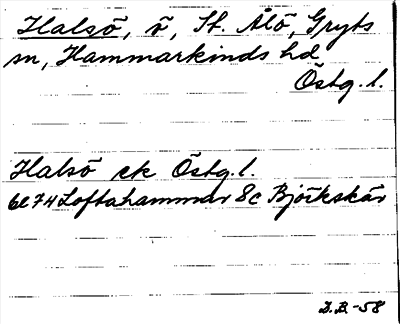 Halsö, ö, St. Ålö, Gryts
sn, Hammarkinds hd
Östg. l.
Halsö ek Östg. l.
6e74 Loftahammar 8c Björkskär
D.B.-58